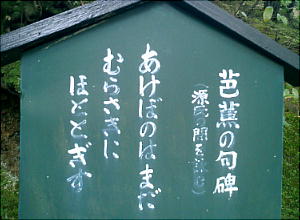 芭蕉の句碑
(源氏の間を詠む)
あけぼのはまだ
むらさきに
ほととぎす